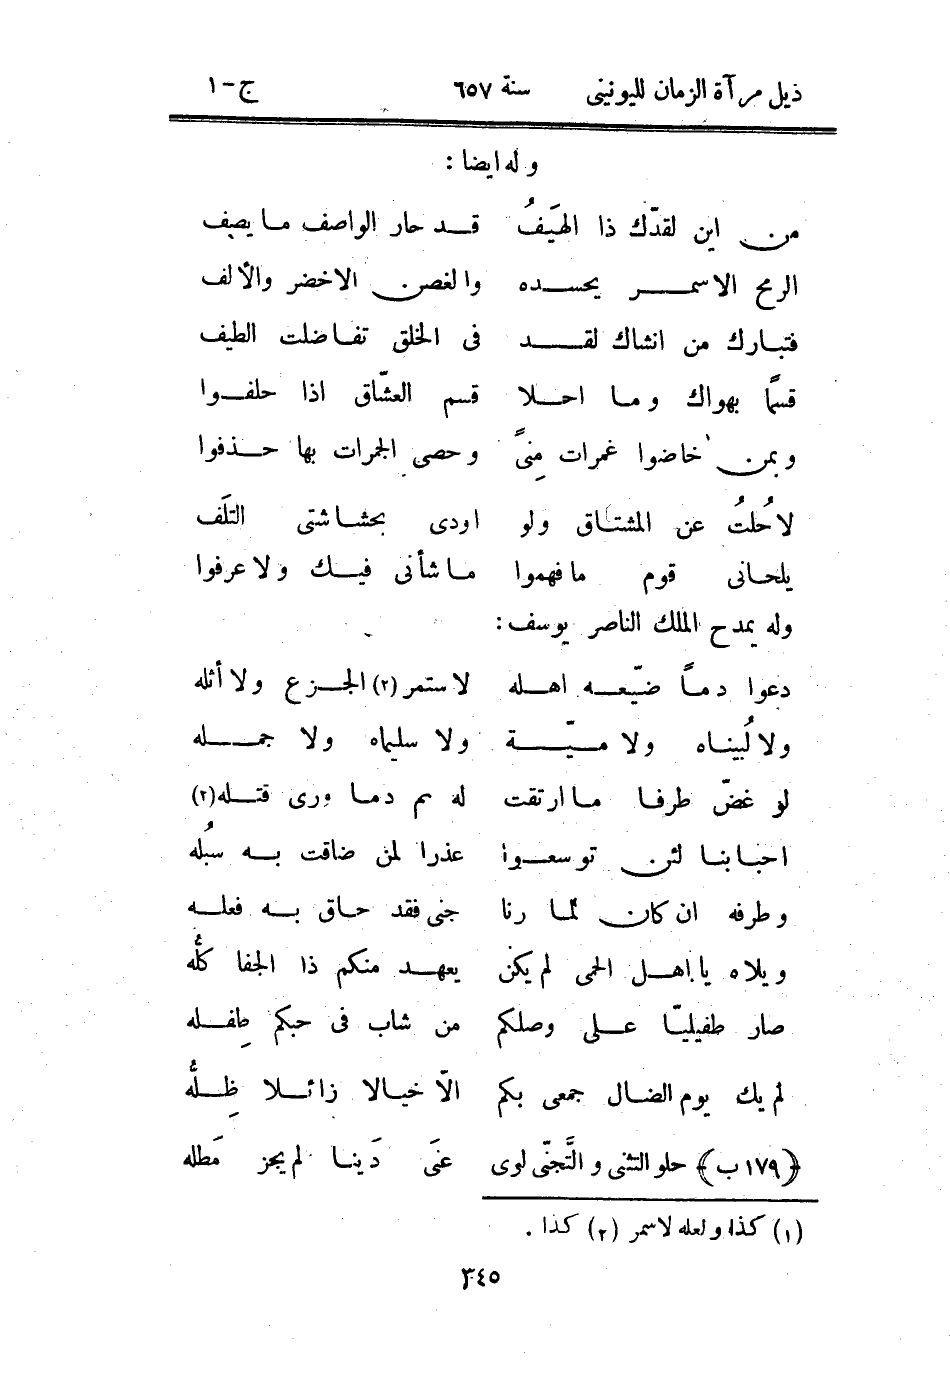 ذيل مرآة الزمان لليونينى سنة ٦٥٧ ج-١
وله ايضا :
من اين لقدّك ذا الهَيَفُ قد حار الواصف ما يصف
الرمح الاسمر يحسده والغصن الاخضر والألف
فتبارك من انشاك لقد فى الخلق تفاضلت الطيف
قسمًا بهواك وما احلا قسم العشّاق اذا حلفوا
وبمن خاضوا غمرات مِنىً وحصى الجمرات بها حذفوا
لاحُلتُ عن المشتاق ولو اودى بحشاشتى التلَف
يلحانى قوم مافهموا ماشأنى فيك ولا عرفوا
وله يمدح الملك الناصر يوسف :
دعوا دماً ضيّعه اهله لاستمر (٢) الجزع ولا أثله
ولا لُبيناه ولا ميّة ولا سليماه ولا جمله
لو غضّ طرفا ما ارتقت له دما ورى قتله (٢)
احبابنا لئن توسعوا عذرا لمن ضاقت به سبُله
وطرفه ان كان لما رنا جنى فقد حاق به فعله
ويلاه يا اهل الحمى لم يكن يعهد منكم ذا الجفا كلُّه
صار طفيليّا على وصلكم من شاب فى حبكم طِفله
لم يك يوم الضال جمعى بكم الّا خيالا زائلا ظِلُّه
﴿١٧٩ ب﴾ حلو التثنى و التَّجنّى لوى عنَى دَينا لم يجز مَطله
(١) كذا ولعله لاسمر (٢) كذا .
٣٤٥